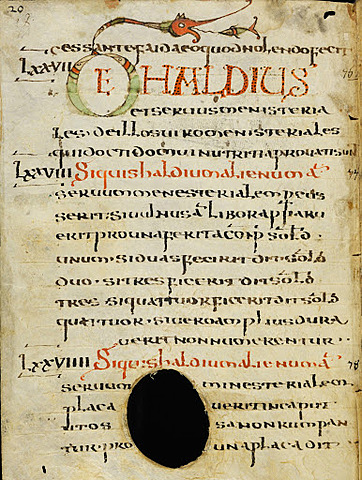 20
cessante faida eo quod nolendo fecit
LXXVII DE HALDIUS 76
et servius menisteria
les de illos viro menisteriales
qui docti domui nutriti aprovati sun
LXXVIII Si quis haldium alienum a 77
servum menesterialem percus
serit si vulnus a libor
erit pro una ferita conp sold
unum si duas fecirit dit sold
duo si tres ficerit dit sold
tres si quattuor ficerit dit sold
quattuor si vero amplius dura
verit non numerentur
LXXVIIII Si quis haldium alienum a 78
servum ministerialem
placa verit in capit
titos sa non rumpan
tur pro una placa dit